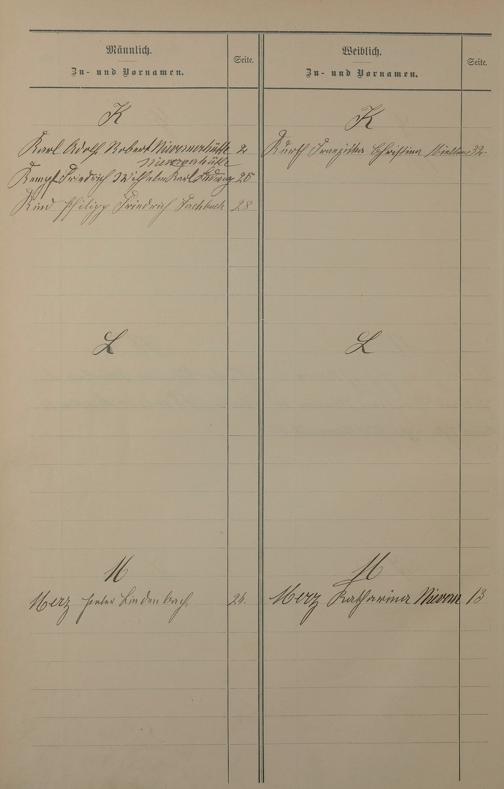 Männlich.
Zu- und Vornamen.
Seite.
Weiblich.
Zu- und Vornamen.
Seite.
K
Karl Adolf Robert Nievernerhütte 2
Nievernerhütte
Kempf Friedrich Wilhelm Karl 25
Kind Philipp Friedrich Fachbach 28
K
Kurth Franziska Christina 32
L
L
M
Merz Peter Lindenbach 24.
M
Merz Katharina Nievern 13